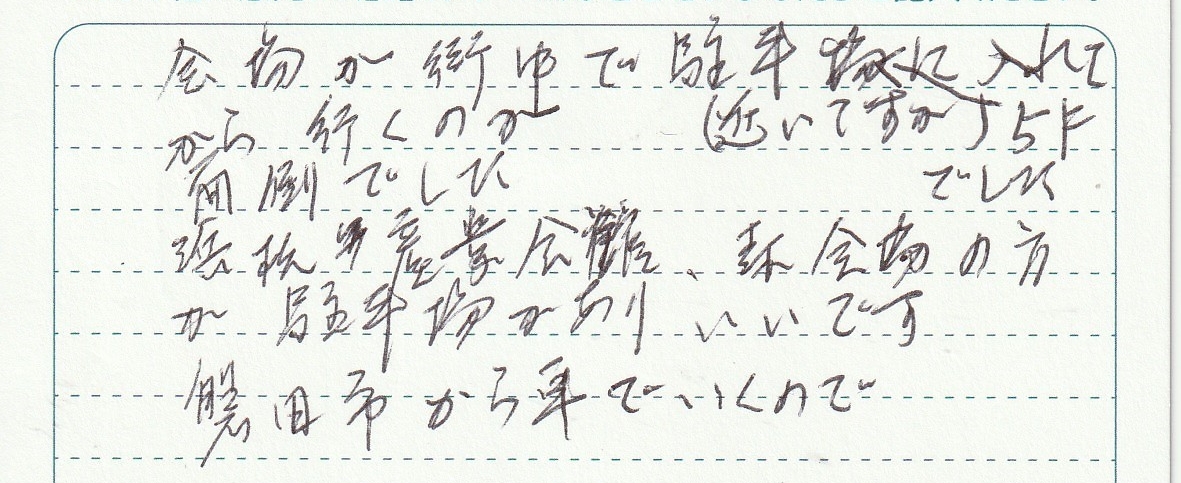 会場が街中で駐車場に入れて
から行くのが(近いですが)ちょト
面倒でした でした
浜松 産業会館、 会場の方
が駐車場があり、いいです
磐田市から車でいくので